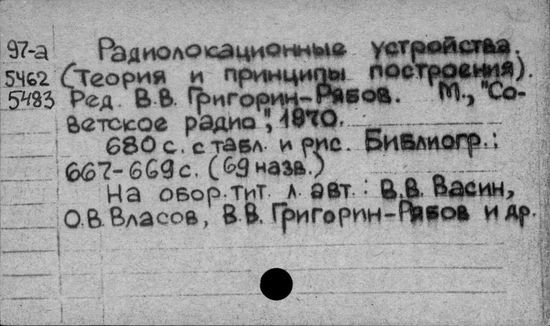 97-а Радиолокационные устройства.
5462 (Теория и принципы построения).
5483 Ред. В.В. Григорин-Рябов. М., "Со-
ветское радио", 1970.
680 с. с табл. и рис. Библиогр.:
667-669 с. (69 назв.)
На обор. тит. л. авт.: В.В. Васин,
О.В. Власов, В.В. Григорин-Рябов и др.